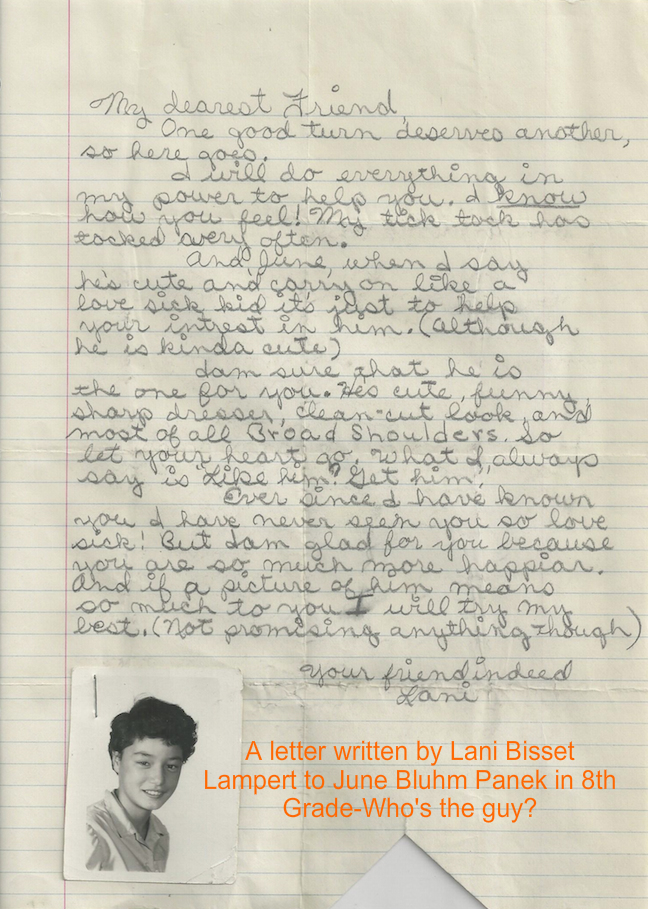 My dearest Friend,
One good turn deserves another,
so here goes.
I will do everything in
my power to help you. I know
how you feel! My tick tock has
tocked very often.
And, June, when I say
he's cute and carry on like a
love sick kid it's just to help
your intrest in him. (although
he is kinda cute)
Iam sure that he is
the one for you. He's cute, funny,
sharp dresser, clean-cut look, and
most of all Broad Shoulders. So
let your heart go. What I always
say is "Like him? Get him!"
Ever since I have known
you I have never seen you so love
sick! But Iam glad for you because
you are so much more happiar.
And if a picture of him means
so much to you I will try my
best. (Not promising anything though)
Your friend indeed
Lani
A letter written by Lani Bisset
Lampert to June Bluhm Panek in 8th
Grade-Who's the guy?